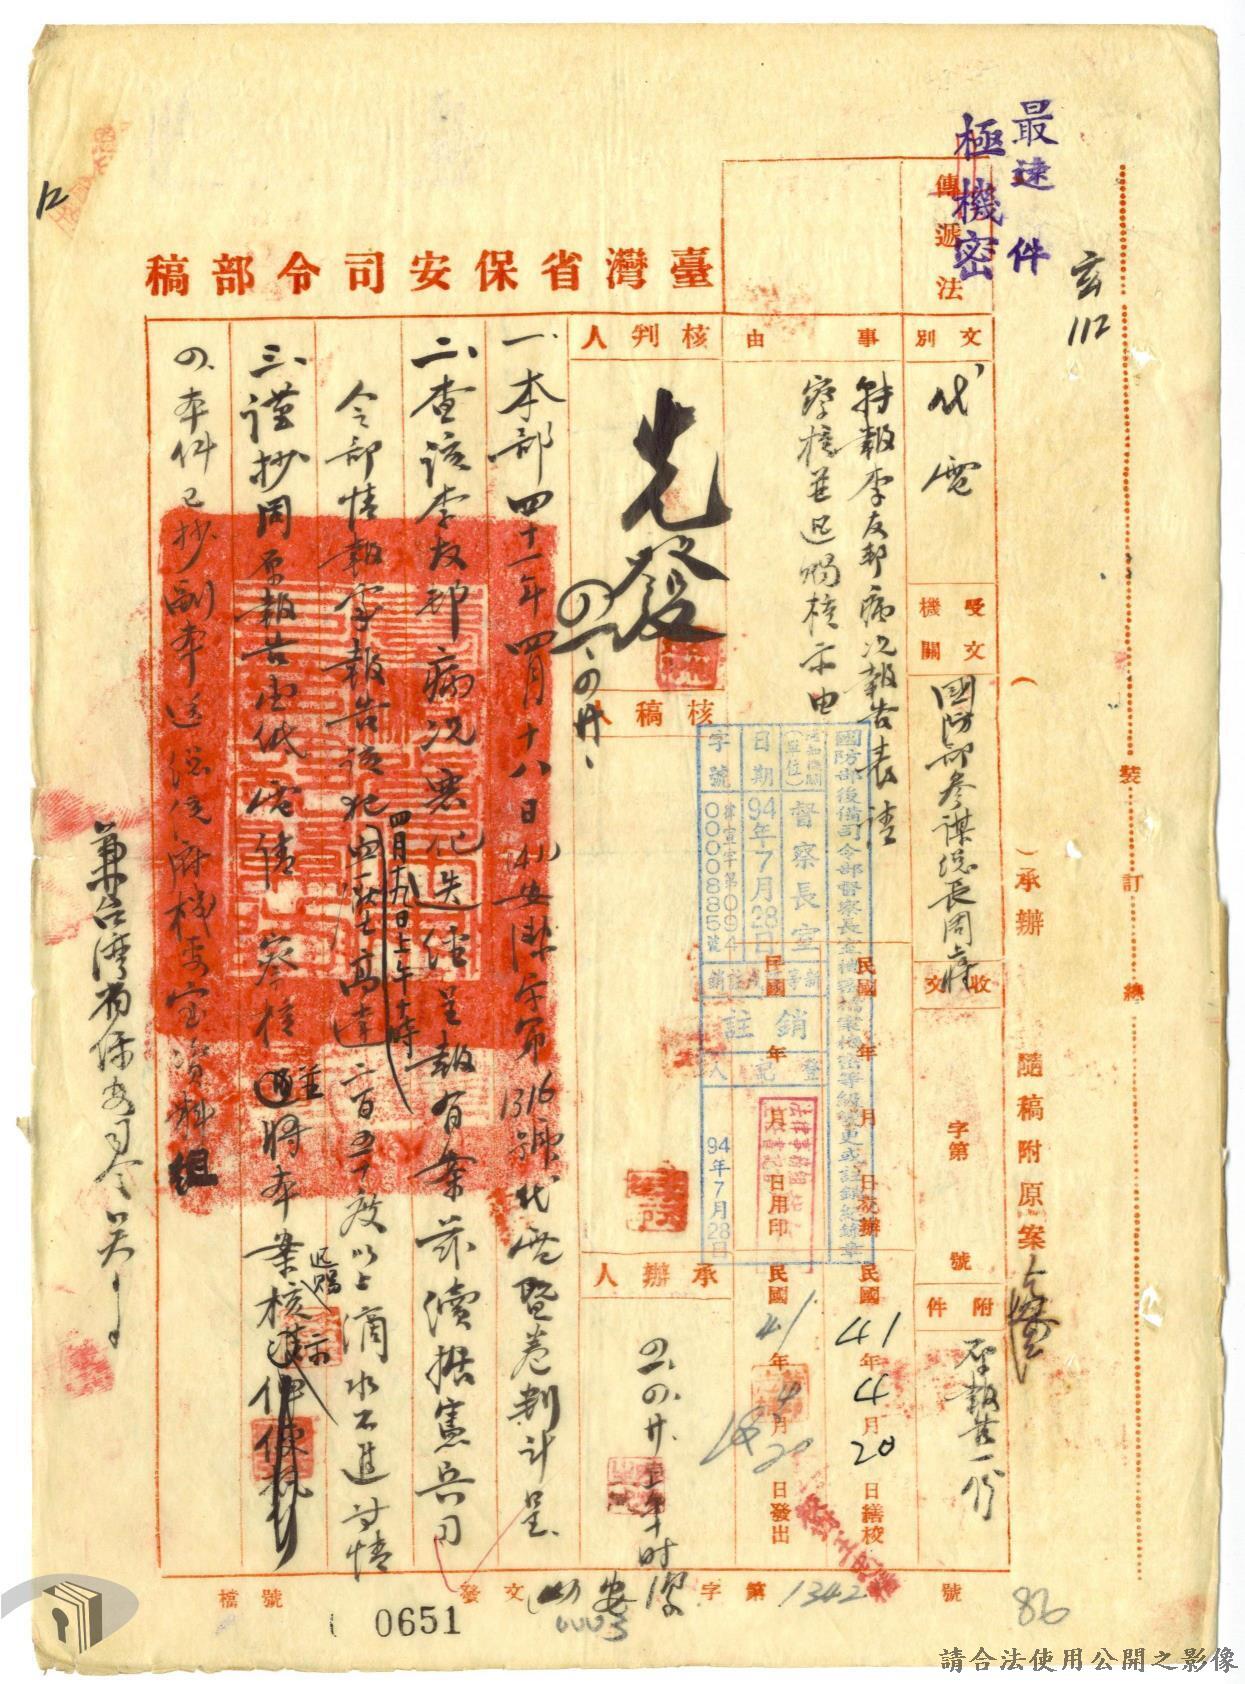 最速件
極機密
玄112
12
臺灣省保安司令部稿
傳遞法
文別
代電
受文機關
國防部參謀總長周
收文
字第
號
附件
原報告一份
事由
轉報李友邦病況報告表請
察核並迅賜核示由
核判人
先發
核稿人
承辦人
四、四、廿、上午十時
民國41年4月20日繕校
民國41年4月20日發出
民國 年 月 日擬辦
民國 年 月 日用印
一、本部四十一年四月十八日(41)安潔字第1316號代電暨卷判計呈。
二、查該李友邦病況惡化迭經呈報有案茲續據憲兵司
令部情報室報告該犯
四月十九日上午十時
高達二百五十度以上滴水不進等情
三、謹抄同原報告電請 察核並
迅賜
將本案核示
四、本件已抄副本送總統府機要室資料組
兼台灣省保安司令吳
國防部後備司令部督察長室機密檔案機密等級變更或註銷紀錄章
通知機關(單位)
督察長室
日期
94年7月28日
字號
律宣字第0940000885號
新等級或註銷
註銷
登記人
94年7月28日
( )承辦 隨稿附原案
裝訂線
檔號
發文
安潔字第1342號
0003
0651
86
請合法使用公開之影像